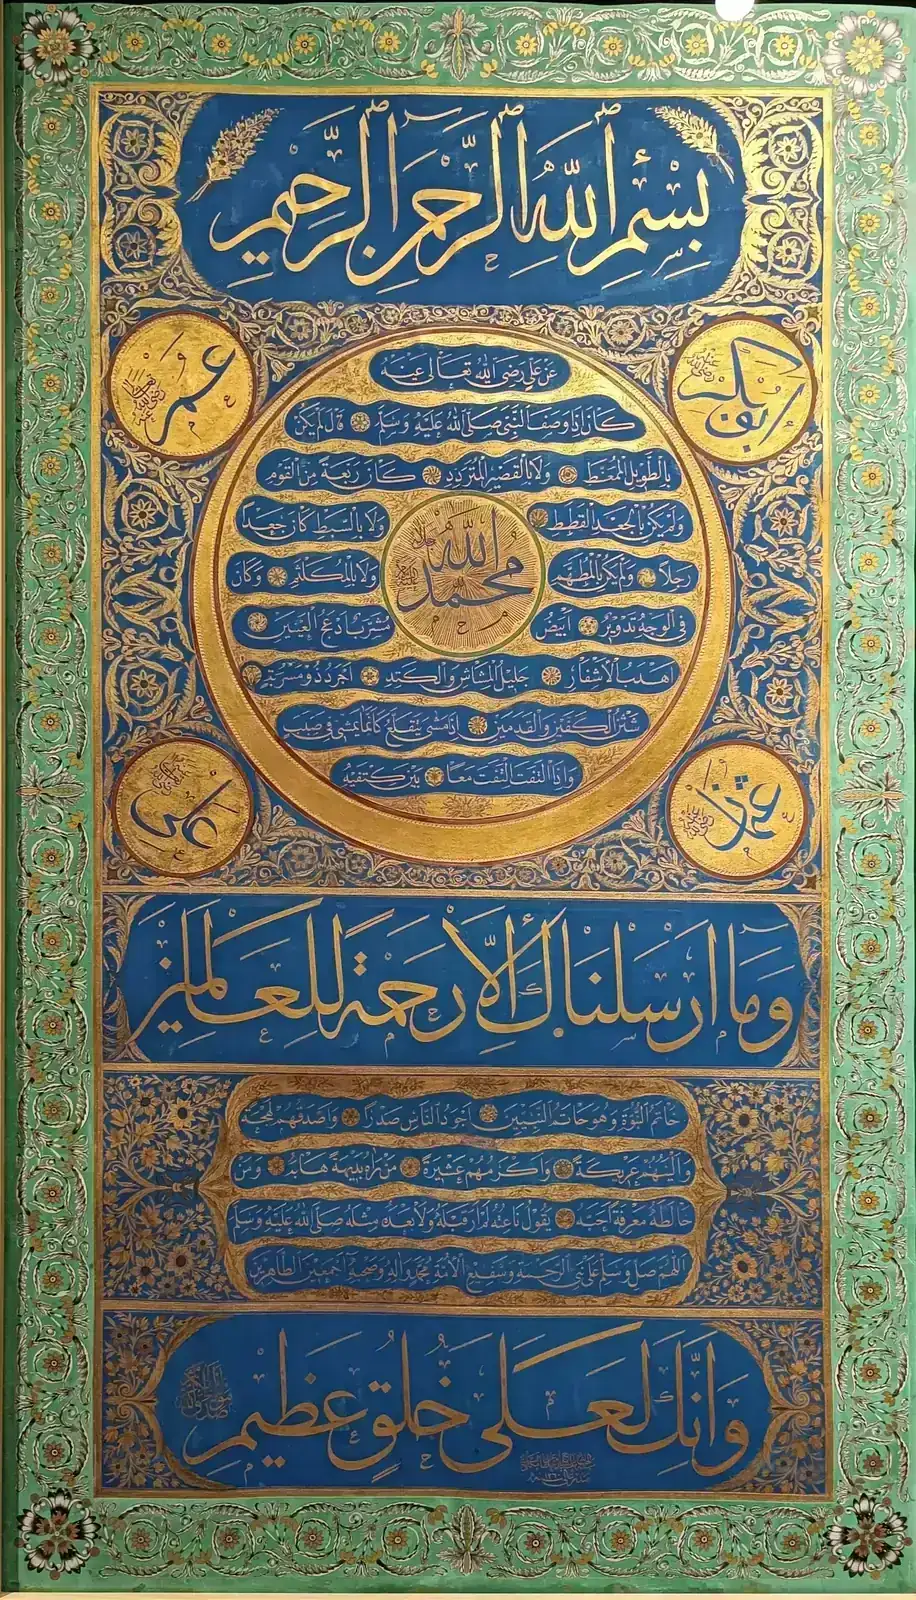 بسم الله الرحمن الرحيم
ابو بكر رضي الله عنه
عمر رضي الله تعالى عنه
عن علي رضي الله تعالى عنه
كان اذا وصف النبي صلى الله عليه وسلم قال لم يكن
بالطويل الممغط ولا بالقصير المتردد كان ربعة من القوم
ولم يكن بالجعد القطط ولا بالسبط كان جعدا
رجلا ولم يكن بالمطهم ولا بالمكلثم وكان
في الوجه تدوير ابيض مشرب ادعج العينين
اهدب الاشفار جليل المشاش والكتد اجرد ذو مسربة
شثن الكفين والقدمين اذا مشى يتقلع كانما يمشي في صبب
واذا التفت التفت معا بين كتفيه
الله جل جلاله
محمد عليه السلام
عثمان رضي الله عنه
علي رضي الله عنه
وما ارسلناك الا رحمة للعالمين
خاتم النبوة وهو خاتم النبيين اجود الناس صدرا واصدقهم لهجة
والينهم عريكة واكرمهم عشيرة من راه بديهة هابه ومن
خالطه معرفة احبه يقول ناعته لم ار قبله ولا بعده مثله صلى الله عليه وسلم
اللهم صل وسلم على نبي الرحمة وشفيع الامة محمد واله وصحبه اجمعين الطاهرين
وانك لعلى خلق عظيم
صدق الله